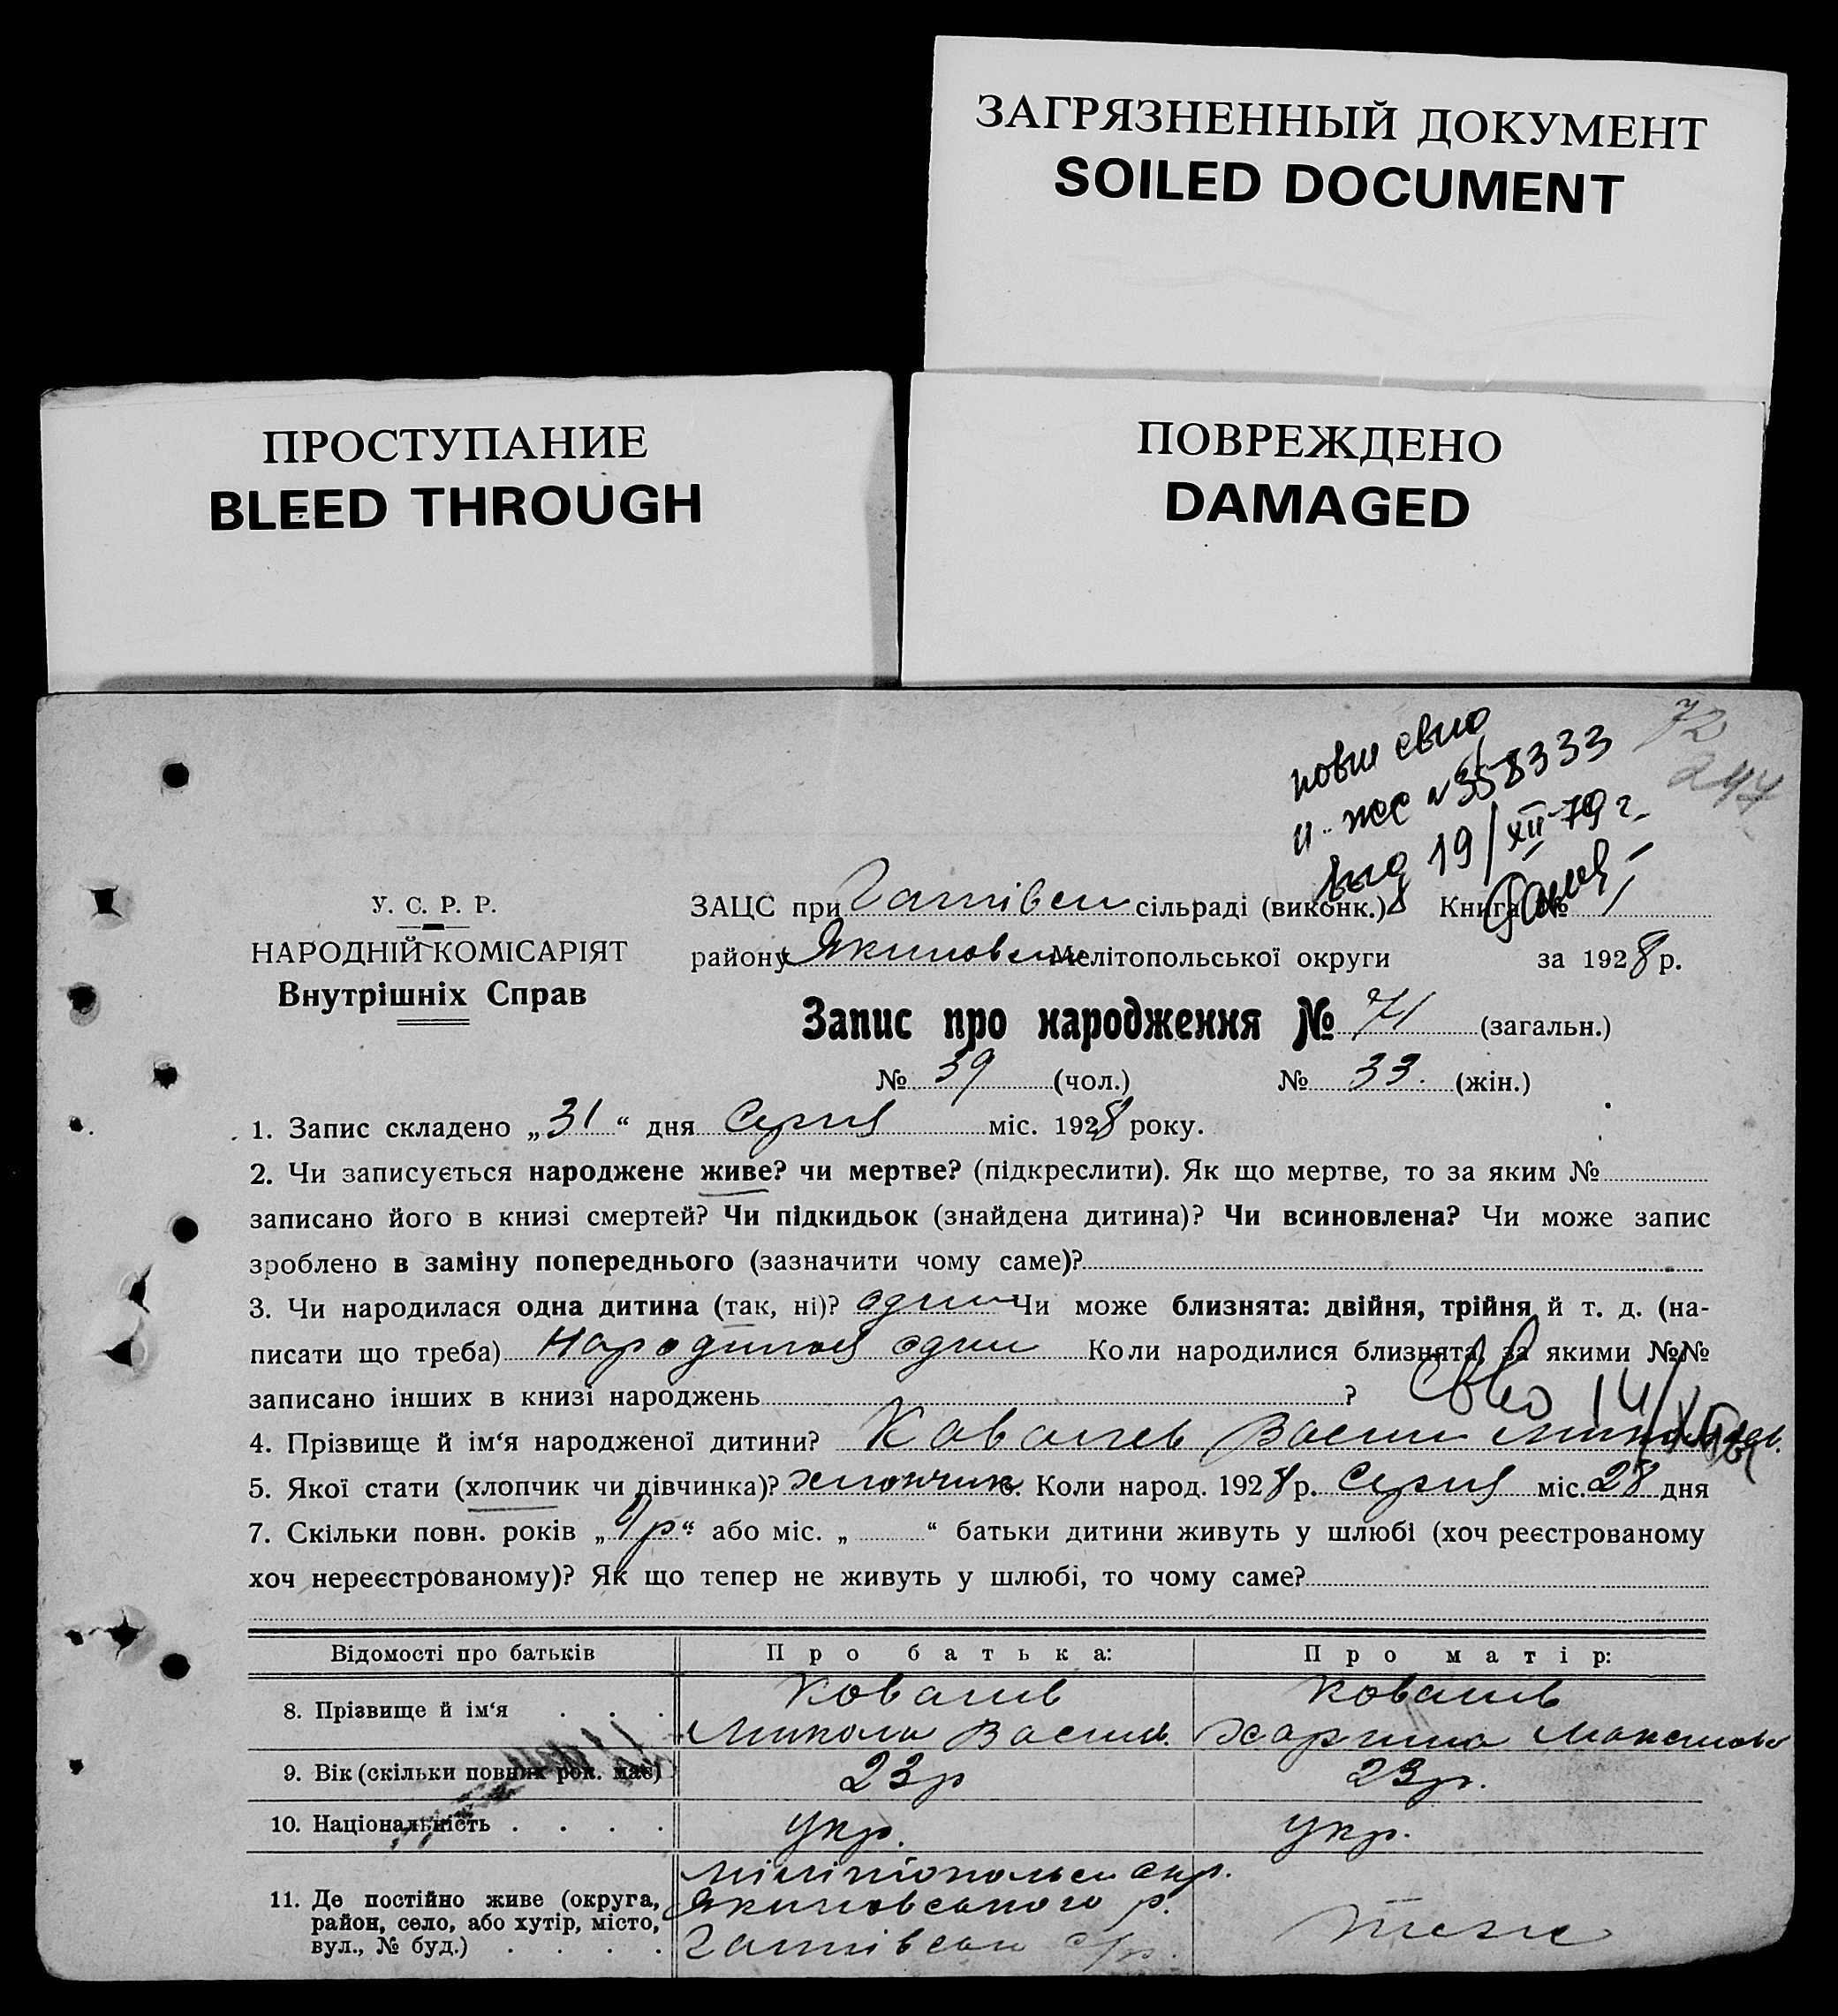 ЗАГРЯЗНЕННЫЙ ДОКУМЕНТ
SOILED DOCUMENT
ПРОСТУПАНИЕ
BLEED THROUGH
ПОВРЕЖДЕНО
DAMAGED
72
244
№ 358333
19/XII-79 г.
У. С. Р. Р.
НАРОДНІЙ КОМІСАРІЯТ
Внутрішніх Справ
ЗАЦС при сільраді (виконк.) Книга № 1
району Якимовськ Мелітопольської округи за 1928 р.
Запис про народження № 71 (загальн.)
№ 39 (чол.) № 33. (жін.)
1. Запис складено „31“ дня Серпня міс. 1928 року.
2. Чи записується народжене живе? чи мертве? (підкреслити). Як що мертве, то за яким №
записано його в книзі смертей? Чи підкидьок (знайдена дитина)? Чи всиновлена? Чи може запис
зроблено в заміну попереднього (зазначити чому саме)?
3. Чи народилася одна дитина (так, ні)? один Чи може близнята: двійня, трійня й т. д. (на-
писати що треба) Народился один Коли народилися близнята, за якими №№
записано інших в книзі народжень ?
4. Прізвище й ім‘я народженої дитини? Ковалев Васил
5. Якої стати (хлопчик чи дівчинка)? хлопчик. Коли народ. 1928 р. Серпня міс. 28 дня
7. Скільки повн. років „ “ або міс. „ “ батьки дитини живуть у шлюбі (хоч реєстрованому
хоч нереєстрованому)? Як що тепер не живуть у шлюбі, то чому саме?
Відомості про батьків Про батька: Про матір:
8. Прізвище й ім‘я Ковалив Ковалив
Микола Васил. Харитина Максимов
9. Вік (скільки повних рок. має) 23 р 23 р.
10. Національність укр. укр.
11. Де постійно живе (округа, район, село, або хутір, місто, вул., № буд.)
окр.
Якимовського р.
теж